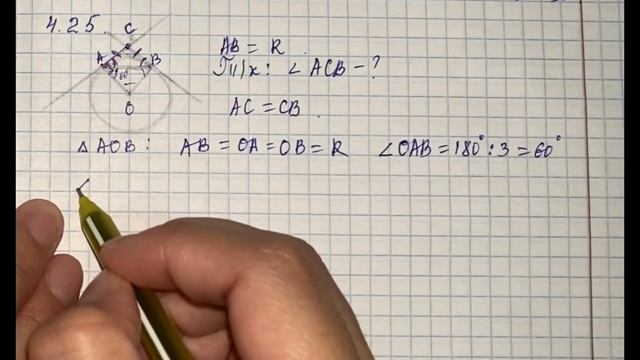 4.25.
C
A B
60°
O
AB = R
Т/к: ∠ACB - ?
AC = CB.
△AOB: AB = OA = OB = R ∠OAB = 180° : 3 = 60°